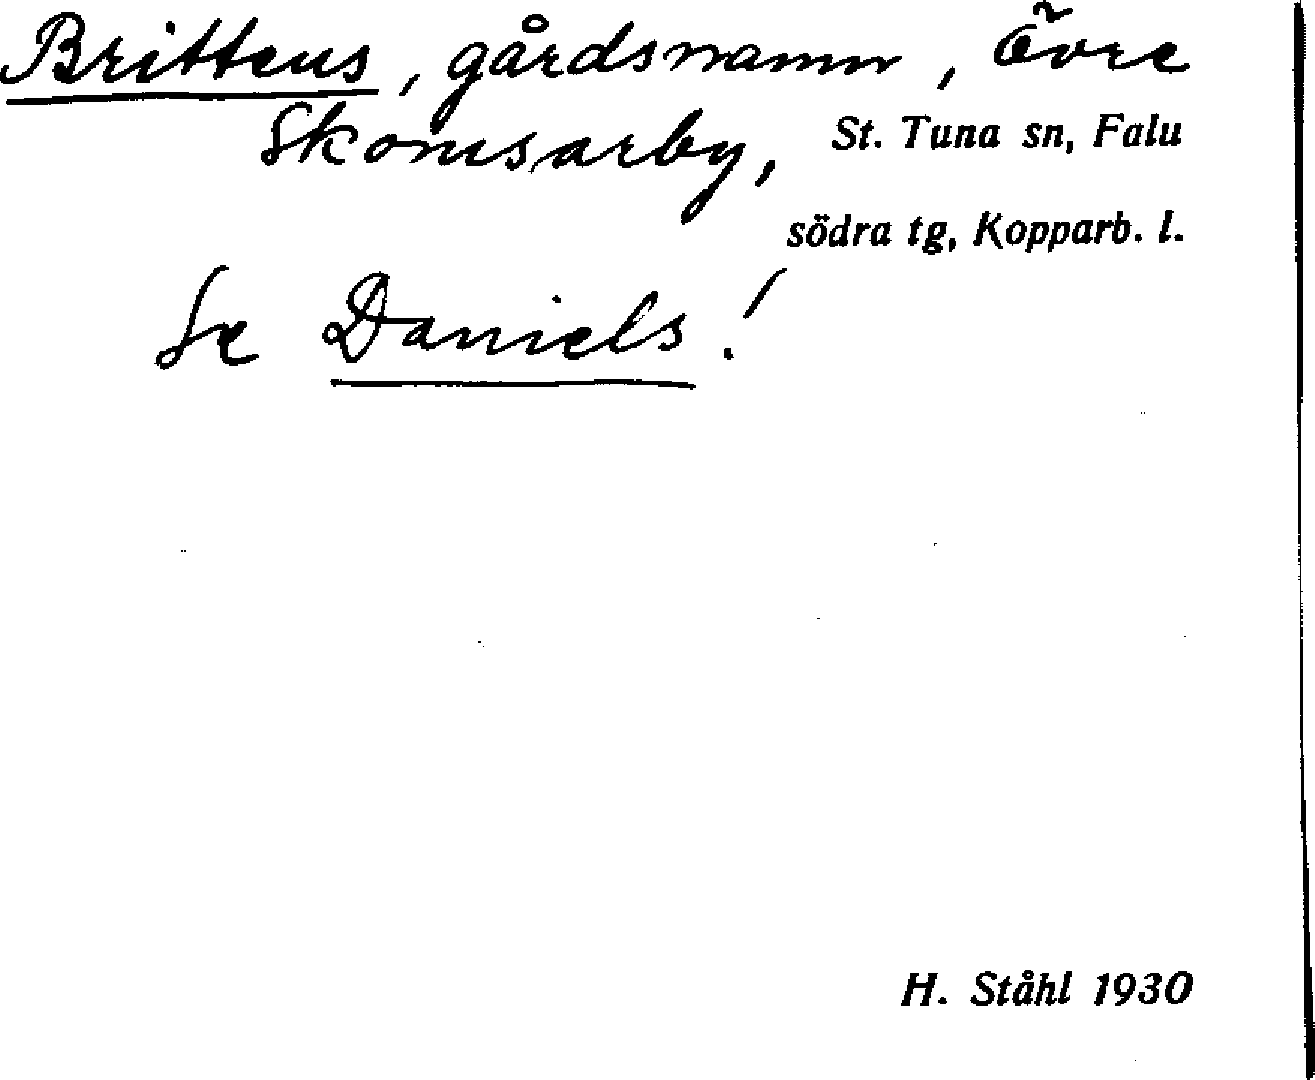 Brittens, gårdsnamn, Övre
Skomsarby, St. Tuna sn, Falu
södra tg, Kopparb. l.
Se Daniels!
H. Ståhl 1930